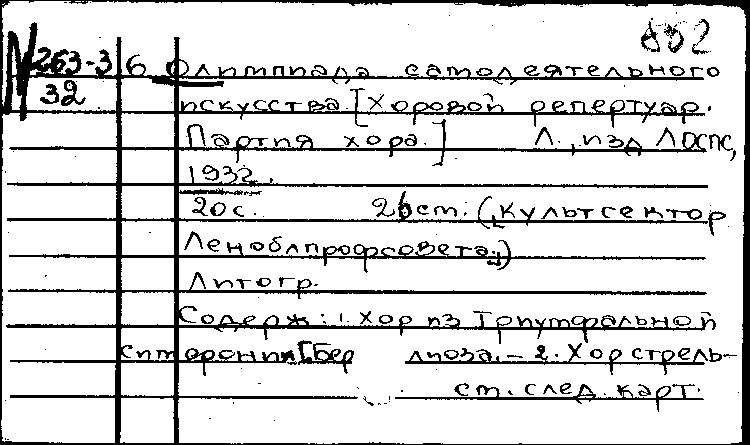 852
N 263-3 6 Олимпиада самодеятельного
32 искусства [Хоровой репертуар.
Партия хора.] Л., изд ЛОСПС,
1932.
20 с. 26 см. (Культсектор
Леноблпрофсовета.)
Литогр.
Содерж: 1. Хор из Триумфальной
симфонии [Бер лиоза. – 2. Хор стрель-
см. след. карт.